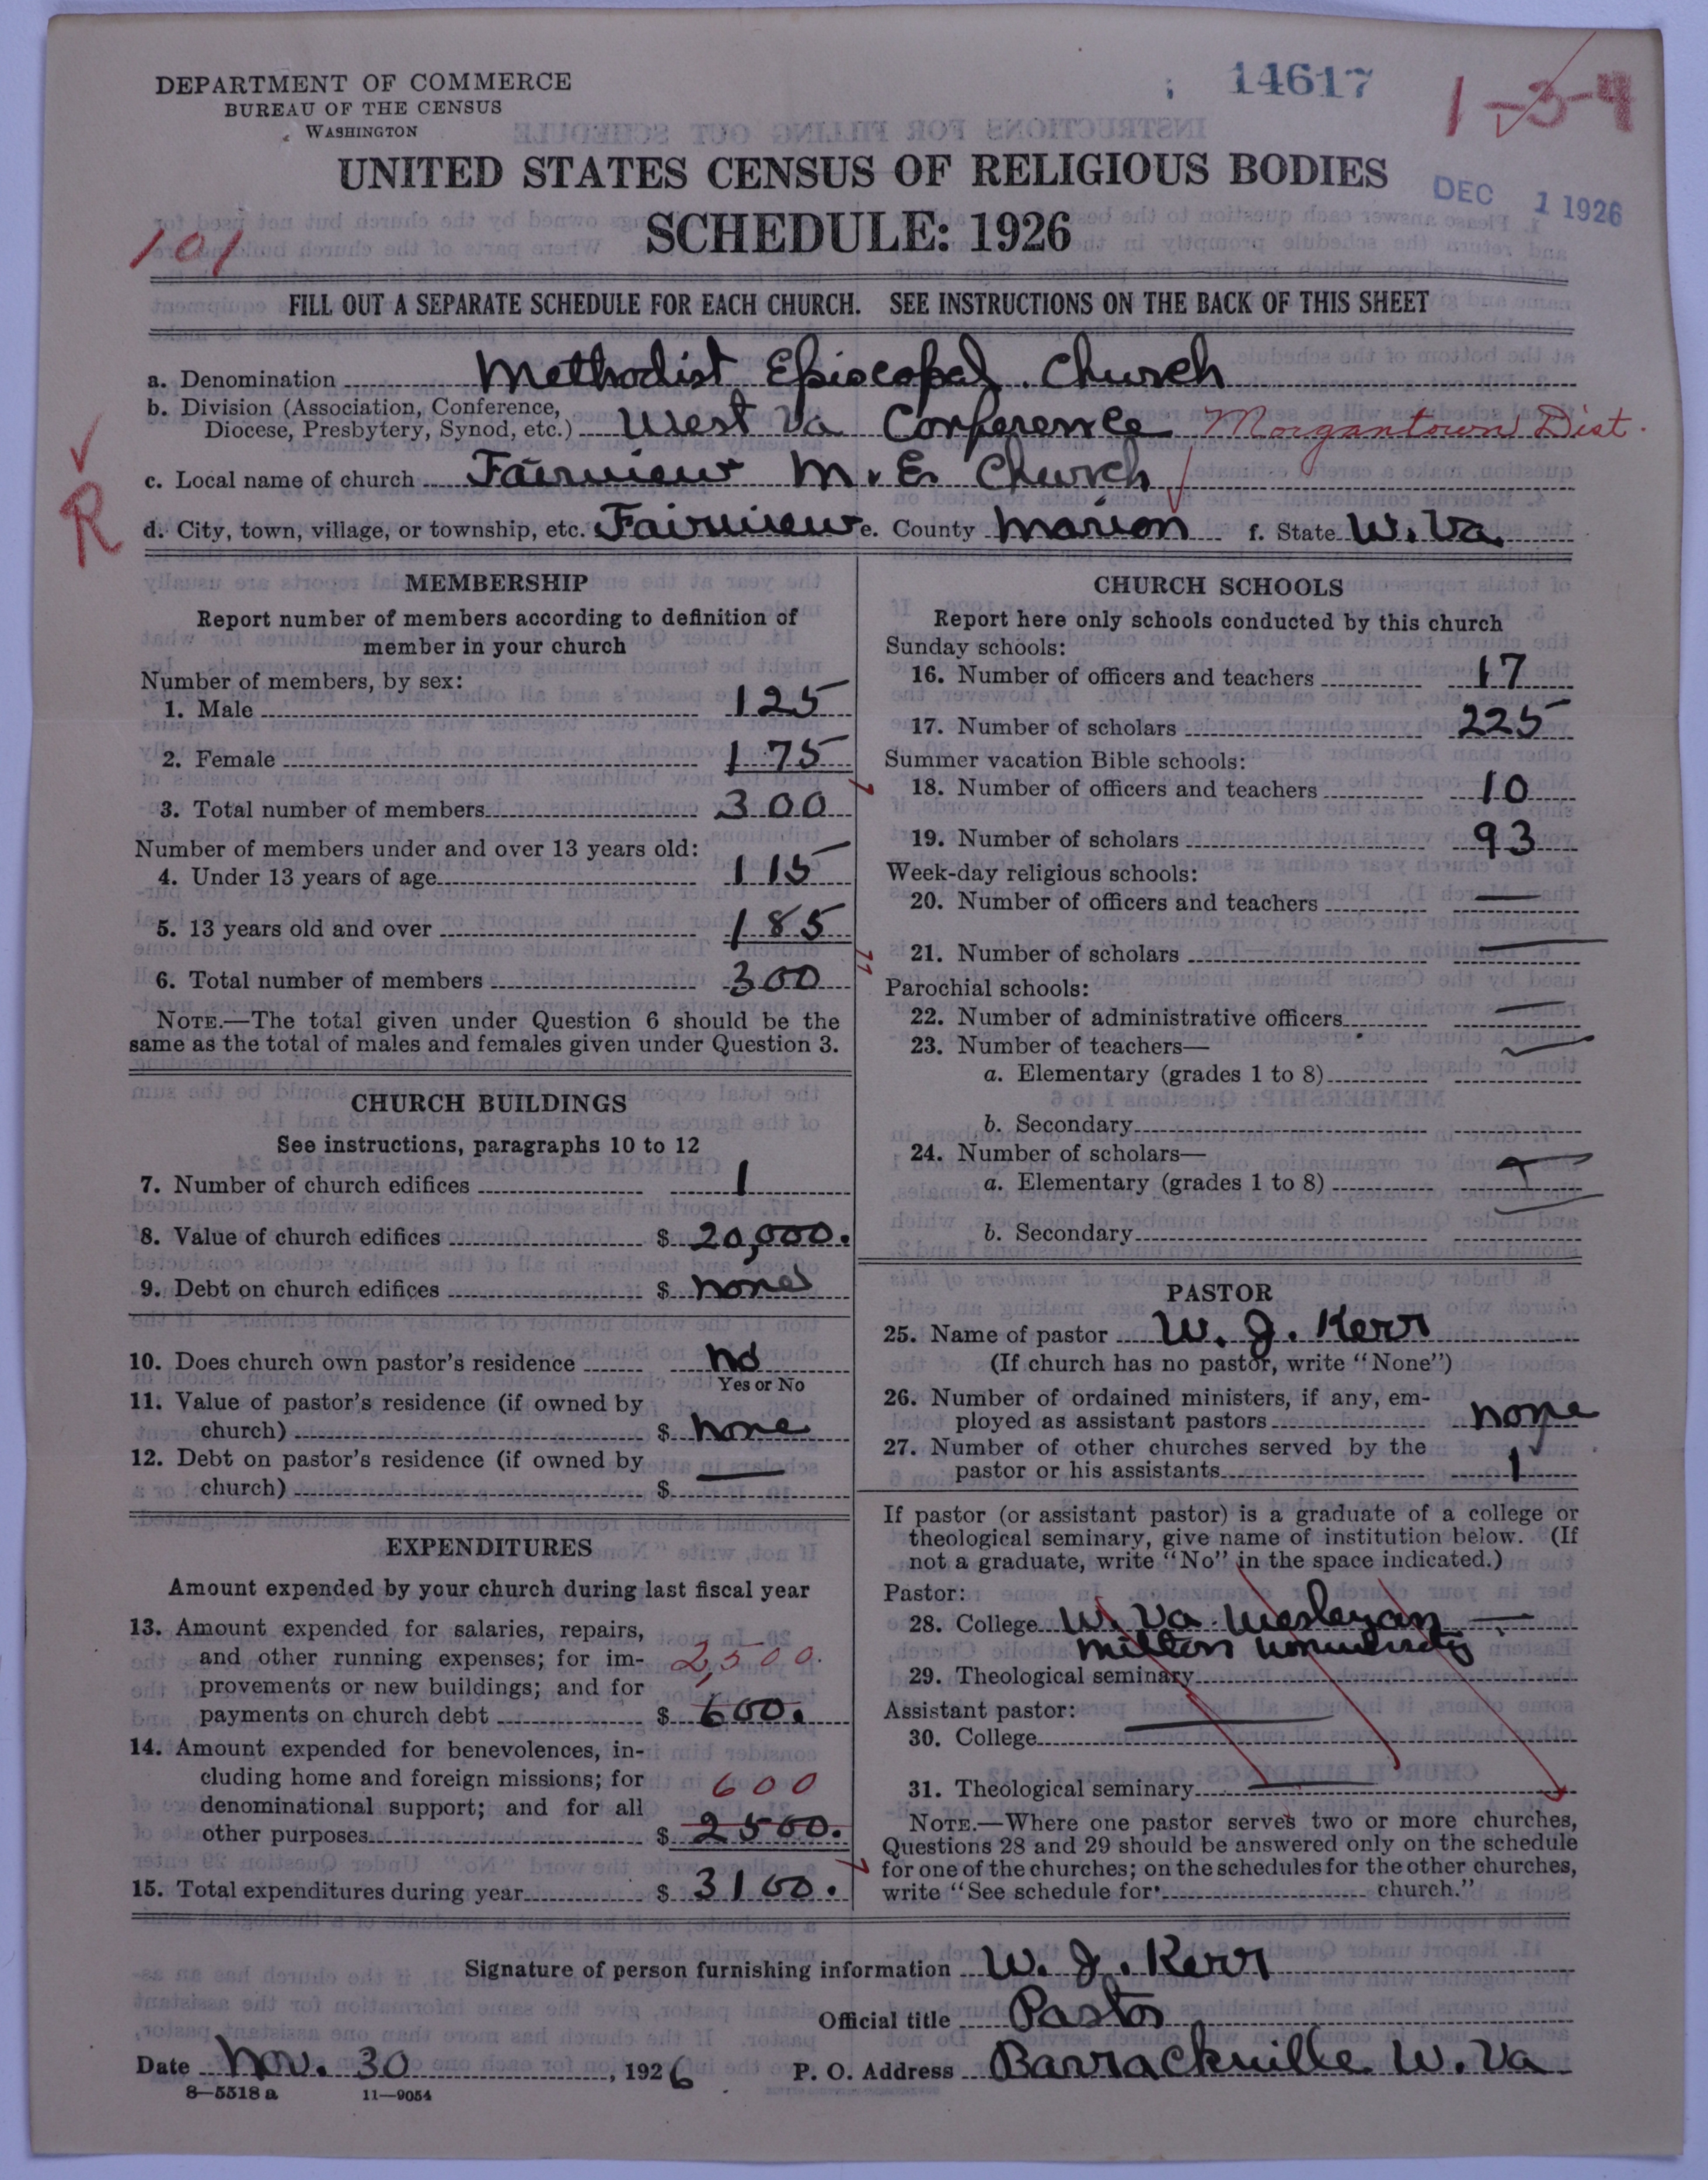 DEPARTMENT OF COMMERCE
BUREAU OF THE CENSUS
WASHINGTON
14617
1-3-4
UNITED STATES CENSUS OF RELIGIOUS BODIES
DEC 1 1926
SCHEDULE: 1926
101
FILL OUT A SEPARATE SCHEDULE FOR EACH CHURCH. SEE INSTRUCTIONS ON THE BACK OF THIS SHEET
a. Denomination Methodist Episcopal Church
b. Division (Association, Conference,
Diocese, Presbytery, Synod, etc.) West Va Conference Morgantown Dist.
c. Local name of church Fairview M. E. Church
R
d. City, town, village, or township, etc. Fairview e. County Marion f. State W. Va.
MEMBERSHIP
Report number of members according to definition of
member in your church
Number of members, by sex:
1. Male 125
2. Female 175
3. Total number of members 300
Number of members under and over 13 years old:
4. Under 13 years of age 115
5. 13 years old and over 185
6. Total number of members 300
NOTE.—The total given under Question 6 should be the
same as the total of males and females given under Question 3.
CHURCH BUILDINGS
See instructions, paragraphs 10 to 12
7. Number of church edifices 1
8. Value of church edifices $ 20,000.
9. Debt on church edifices $ none
10. Does church own pastor's residence No
Yes or No
11. Value of pastor's residence (if owned by
church) $ none
12. Debt on pastor's residence (if owned by
church) $ —
EXPENDITURES
Amount expended by your church during last fiscal year
13. Amount expended for salaries, repairs,
and other running expenses; for im- 2,500.
provements or new buildings; and for
payments on church debt $ 600.
14. Amount expended for benevolences, in-
cluding home and foreign missions; for 600
denominational support; and for all
other purposes $ 2500.
15. Total expenditures during year $ 3100.
CHURCH SCHOOLS
Report here only schools conducted by this church
Sunday schools:
16. Number of officers and teachers 17
17. Number of scholars 225
Summer vacation Bible schools:
18. Number of officers and teachers 10
19. Number of scholars 93
Week-day religious schools:
20. Number of officers and teachers —
21. Number of scholars —
Parochial schools:
22. Number of administrative officers —
23. Number of teachers—
a. Elementary (grades 1 to 8)
b. Secondary
24. Number of scholars—
a. Elementary (grades 1 to 8)
b. Secondary
PASTOR
25. Name of pastor W. J. Kerr
(If church has no pastor, write "None")
26. Number of ordained ministers, if any, em-
ployed as assistant pastors none
27. Number of other churches served by the
pastor or his assistants 1
If pastor (or assistant pastor) is a graduate of a college or
theological seminary, give name of institution below. (If
not a graduate, write "No" in the space indicated.)
Pastor:
28. College W. Va. Wesleyan —
Milton
29. Theological seminary
Assistant pastor:
30. College —
31. Theological seminary —
NOTE.—Where one pastor serves two or more churches,
Questions 28 and 29 should be answered only on the schedule
for one of the churches; on the schedules for the other churches,
write "See schedule for church."
Signature of person furnishing information W. J. Kerr
Official title Pastor
Date Nov. 30, 1926 P. O. Address Barrackville W. Va
8—5518 a 11—9054